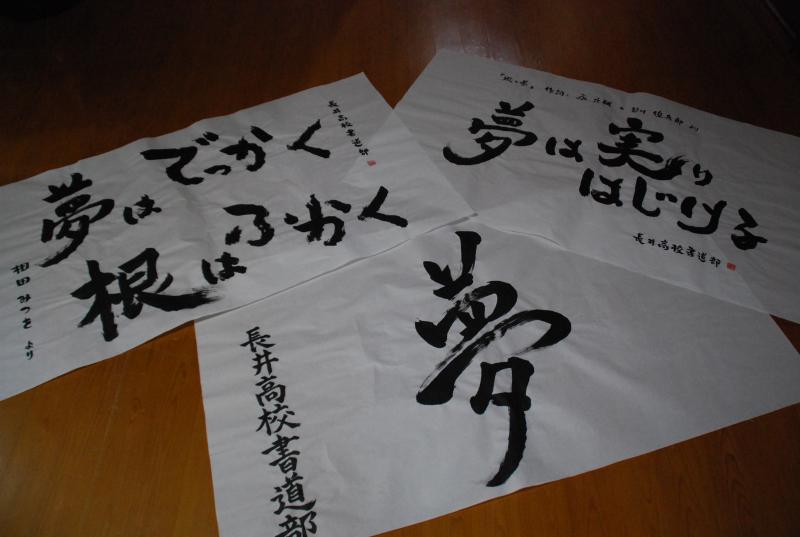 長井高校書道部
夢はでっかく
根はふかく
相田みつを より
作詞
夢は実り
はじける
長井高校書道部
夢
長井高校書道部